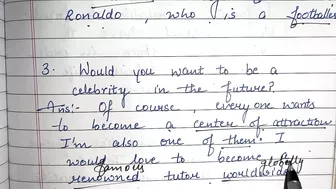 Ronaldo, who is a footballer
3. Would you want to be a
celebrity in the future?
Ans:- Of course, everyone wants
to become a center of attraction
I'm also one of them. I
would love to become
famous globally
renowned tutor worldwide